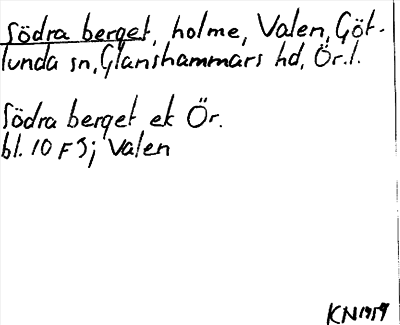 Södra berget, holme, Valen, Göt-
lunda sn, Glanshammars hd, Ör.l.
Södra berget ek Ör.
bl. 10 FSj Valen
KN 1959